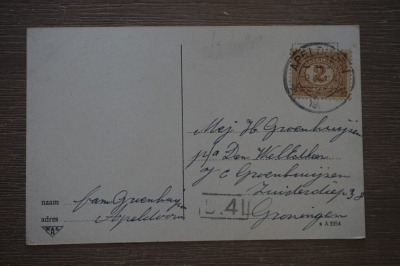 APELDOORN
2
Mej. H. Groenhuijsen
p/a Den
J C Groenhuijsen
Zuiderdiep 38
Groningen
naam fam Groenhuijsen
adres Apeldoorn
.41